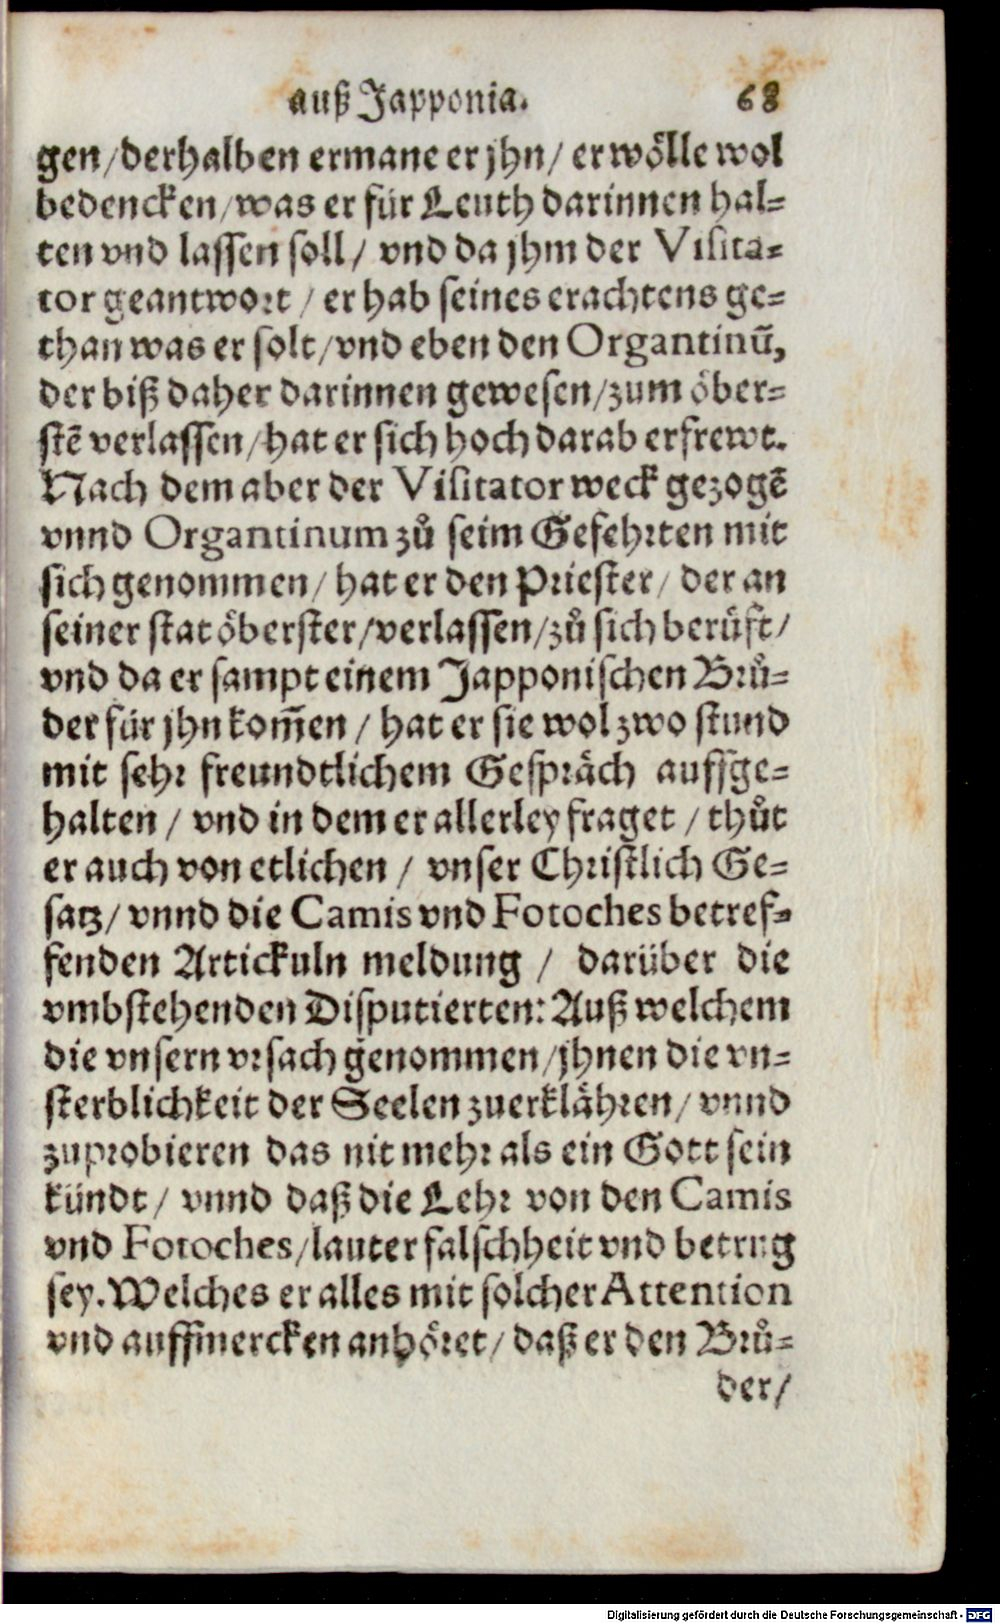 auß Japponia. 68
gen/derhalben ermane er jhn/ er wölle wol
bedencken/was er für Leuth darinnen hal⸗
ten vnd lassen soll/ vnd da jhm der Visita⸗
tor geantwort / er hab seines erachtens ge⸗
than was er solt/vnd eben den Organtinũ,
der biß daher darinnen gewesen/zum öber⸗
stẽ verlassen/hat er sich hoch darab erfrewt.
Nach dem aber der Visitator weck gezogẽ
vnnd Organtinum zů seim Gefehrten mit
sich genommen/ hat er den Priester/ der an
seiner stat öberster/verlassen/zů sich berüfft/
vnd da er sampt einem Japponischen Brů⸗
der für jhn kom̃en / hat er sie wol zwo stund
mit sehr freundtlichem Gespräch auffge⸗
halten / vnd in dem er allerley fraget / thůt
er auch von etlichen / vnser Christlich Ge⸗
satz/ vnnd die Camis vnd Fotoches betref⸗
fenden Artickuln meldung / darüber die
vmbstehenden Disputierten: Auß welchem
die vnsern vrsach genommen/jhnen die vn⸗
sterblichkeit der Seelen zuerklähren/ vnnd
zuprobieren das nit mehr als ein Gott sein
kündt/ vnnd daß die Lehr von den Camis
vnd Fotoches/lauter falschheit vnd betrug
sey. Welches er alles mit solcher Attention
vnd auffmercken anhöret/ daß er den Brů⸗
der/
Digitalisierung gefördert durch die Deutsche Forschungsgemeinschaft - DFG